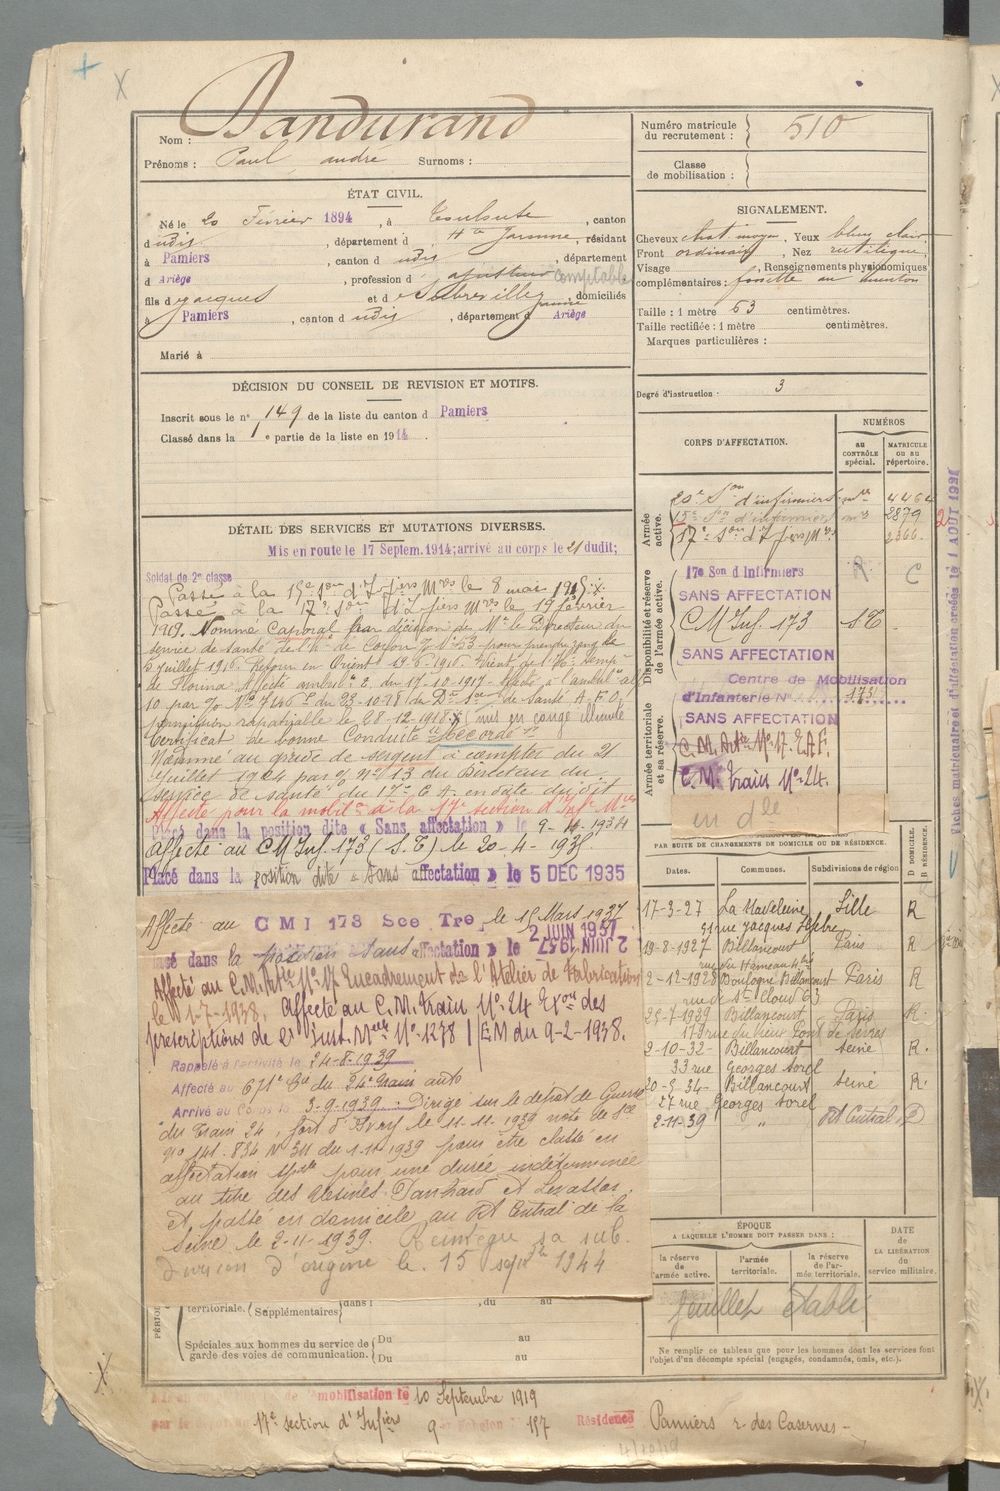 Nom : Dandurand
Prénoms : Paul, andré Surnoms :
ÉTAT CIVIL.
Né le 20 Février 1894, à Toulouse, canton
dudis, département d Hte Garonne, résidant
à Pamiers, canton d udis, département
d Ariège, profession d ajusteur comptable
fils d Jacques et d domiciliés
à Pamiers, canton d udis, département d Ariège
Marié à
DÉCISION DU CONSEIL DE REVISION ET MOTIFS.
Inscrit sous le n° 149 de la liste du canton d Pamiers
Classé dans la 1e partie de la liste en 1914
DÉTAIL DES SERVICES ET MUTATIONS DIVERSES.
Mis en route le 17 Septem. 1914; arrivé au corps le 21 dudit;
Soldat de 2e classe
Passé à la 15e Son d'Ifiers Mres le 8 mai 1915.
Passé à la 17e Son d'Ifiers Mres le 19 février
1919. Nommé Caporal par décision de Mr le Directeur du
service de santé de la
juillet 1916. Retour en Orient 19-6-1916.
de Florina Affecté 2. du 17-10-1917
10 par
28-12-1918. (mis en congé illimité
Certificat de bonne Conduite "Accordé".
Nommé au grade de sergent à compter du 21
Juillet 1924 par du Directeur du
service de santé du 17e C.A. en date dudit
Affecté pour la mobilon à la 17e section d'Infrs Mres
Placé dans la position dite « Sans affectation » le 9-4-1934
Affecté au CM Inf. 173 (S.E) le 20-4-1935.
Placé dans la position dite « Sans affectation » le 5 DEC 1935
Affecté au CMI 173 Sce Tre, le 15 Mars 1937
2 JUIN 1937
Placé dans la position « sans affectation » le 2 JUIN 1937
Affecté au C.M. Artie No 17 Encadrement de l'Atelier de Fabrication
le 1-7-1938. Affecté au C.M. Train No 24 Exon des
prescriptions de l' Inst. Melle No 1278 I/EM du 9-2-1938.
Rappelé à l'activité le 24-8-1939
Affecté au 671e Cie du 24e Train auto
Arrivé au Corps le 3-9-1939. Dirigé sur le dépôt de Guerre
du Train 24, fort d'Ivry le 11-11-1939 note de Sce
No 141-834 No 511 du 1-11-1939 pour être classé en
affectation spéle pour une durée indéterminée
au titre des Usines Panhard et Levassor.
et passé en domicile au Rt Central de la
Seine le 2-11-1939. Réintègre sa sub-
division d'origine le 15 septbre 1944
territoriale. (Supplémentaires) dans l , du au
Spéciales aux hommes du service de garde des voies de communication. Du au
Du au
Numéro matricule du recrutement : 510
Classe de mobilisation :
SIGNALEMENT.
Cheveux chat. moyen, Yeux bleu clair
Front ordinaire, Nez rectiligne,
Visage , Renseignements physionomiques
complémentaires : fossette au menton
Taille : 1 mètre 53 centimètres.
Taille rectifiée : 1 mètre centimètres.
Marques particulières :
Degré d'instruction : 3
CORPS D'AFFECTATION.
NUMÉROS
au CONTRÔLE spécial.
MATRICULE OU AU répertoire.
Armée active.
20e Son d'infirmiers mres 4464
15e Son d'infirmiers mres 2879
17e Son d'Ifiers Mres 2366
Disponibilité et réserve de l'armée active.
17e Son d'Infirmiers R C
SANS AFFECTATION
CM Inf. 173 SE
SANS AFFECTATION
Centre de Mobilisation
d'Infanterie No 173
Armée territoriale et sa réserve.
SANS AFFECTATION
C.M. Artie No 17. E.A.F.
C.M. Train No 24.
en dle
PAR SUITE DE CHANGEMENTS DE DOMICILE OU DE RÉSIDENCE.
Dates. Communes. Subdivisions de région D DOMICILE. R RÉSIDENCE.
17-3-27 La Madeleine Lille R
51 rue Jacques Lefebre
19-8-1927 Billancourt Paris R
rue du Hameau
2-12-1928 Boulogne Billancourt Paris R
rue de St Cloud 63
Billancourt Paris R.
173 rue du Vieux Pont de Sèvres
2-10-32 Billancourt Seine R.
33 rue Georges Sorel
20-5-34 Billancourt Seine R.
27 rue Georges Sorel
2-11-39 " Rt Central D
ÉPOQUE
A LAQUELLE L'HOMME DOIT PASSER DANS :
la réserve de l'armée active.
l'armée territoriale.
la réserve de l'armée territoriale.
DATE de LA LIBÉRATION du service militaire.
feuillet établi
Ne remplir ce tableau que pour les hommes dont les services font l'objet d'un décompte spécial (engagés, condamnés, omis, etc.).
Fiches matriculaire et d'affectation créées le 1 AOUT 1921
démobilisation le 10 Septembre 1919
17e section d'Infiers 9e Echelon No 157 Résidence Pamiers r. des Casernes